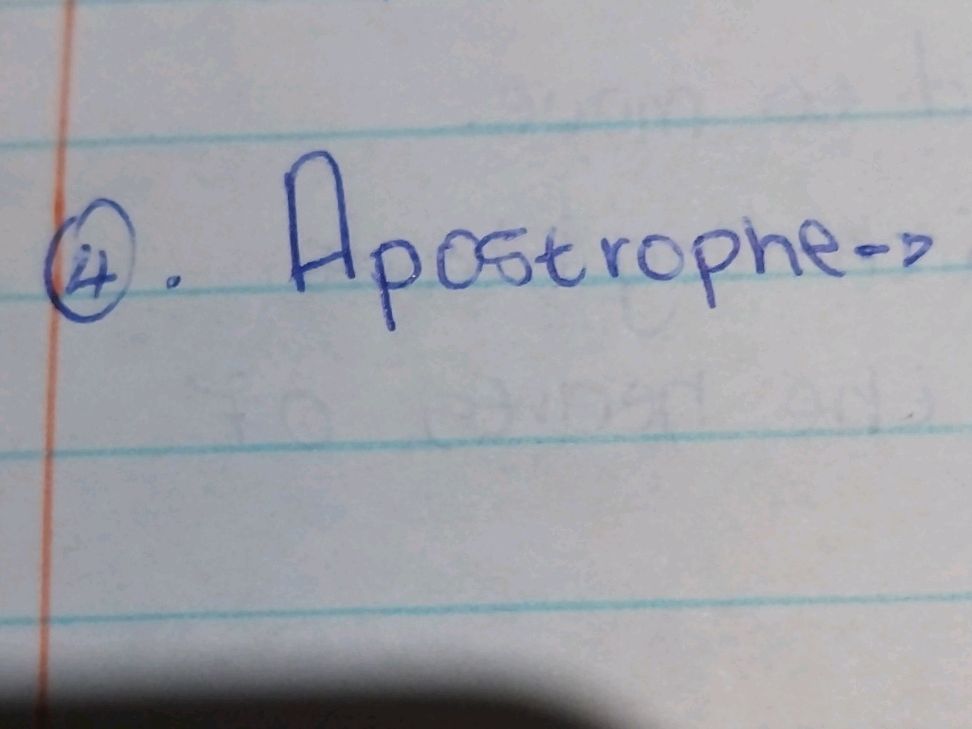 ④. Apostrophe->